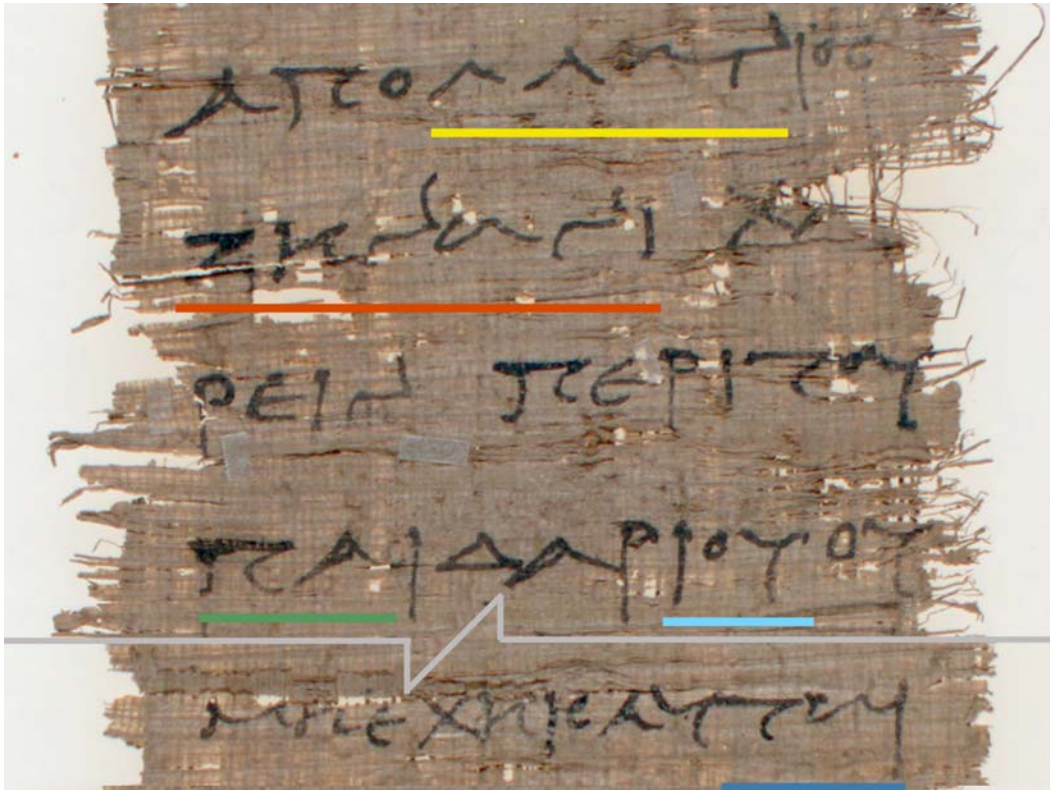 ΑΠΟΛΛΩΝΙΟΣ
ΖΗΝΩΝΙ ΧΑΙ
ΡΕΙΝ ΠΕΡΙ ΤΟΥ
ΠΑΙΔΑΡΙΟΥ ΟΥ